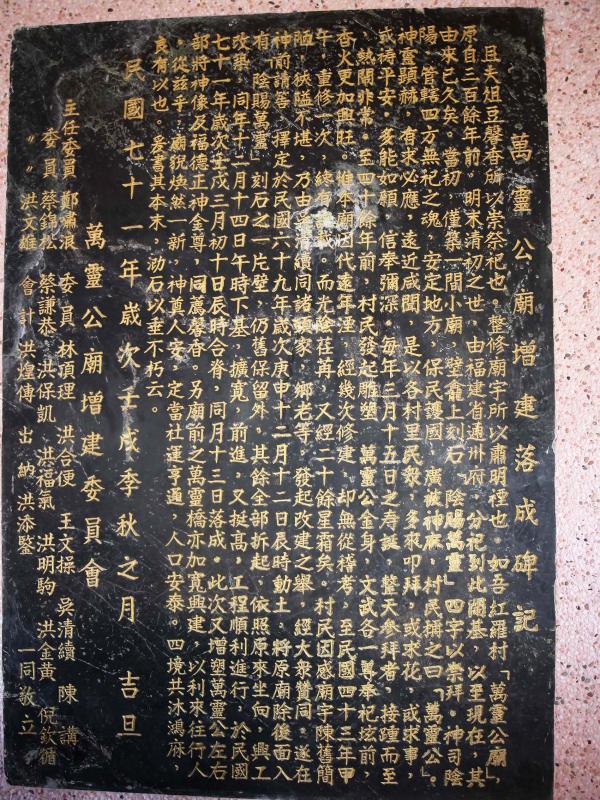 萬靈公廟增建落成碑記
且夫俎豆馨香所以崇祭祀也。整修廟宇所以肅明禋也。如吾紅羅村「萬靈公廟」，其
原自三百餘年前。明末清初之世，由福建省通州府，分祀到此開基，以至現在，其
由來已久矣。當初，僅築一間小廟，壁龕上刻石「陰賜萬靈」四字以崇拜。神司陰
陽，管轄四方無祀之魂，安定地方，保民護國，廣被神庥，村民稱之曰「萬靈公」。
神靈顯赫，有求必應，遠近咸聞，是以各村里民衆，多來叩拜，或求花，或求事，
或祷平安，多能如願，信奉彌深。每年三月十五日之壽誕，整天參拜者，接踵而至
，熱鬧非常。至四十餘年前，村民發起雕塑 萬靈公金身，文武各一尊奉祀炫前，
香火更加興旺。惟本廟因代遠年湮，經幾次修建，却無從稽考，至民國四十三年甲
午，重修一次，總有 。而光陰荏苒，又經二十餘星霜矣。村民因感廟宇陳舊簡
陋，狹隘不堪，乃由吳清續同諸頭家，鄉老等，發起改建之舉，經大衆贊同，遂在
神前請筶，擇定於民國六十九年歲次庚申十二月十二日辰時動土，將原廟除後面入
有「陰賜萬靈」刻石之一片壁，仍舊保留外，其餘全部拆起，依照原來坐向，興工
改築，同年十一月十四日午時下基，擴寬，前進，又挺高，工程順利進行，於民國
七十一年歲次壬戌三月初十日辰時合脊，同月十三日落成。此次又增塑萬靈公左右
部將神像及福德正神金尊，同薦馨香。另廟前之萬靈橋亦加寬興建，以利來往行人
。從兹乎，廟貌煥然一新，神奠人安，定當社運亨通，人口安泰。四境共沐鴻庥，
良有以也。爰書其本末，泐石以垂不朽云。
民國七十一年歲次壬戌季秋之月 吉旦
萬靈公廟增建委員會
主任委員 鄭嘯浪 委員 林頂理 洪合便 王文操 吳清續 陳講
委員 蔡錦松 蔡謙恭 洪保凱 洪福氣 洪明駒 洪金黃 倪欽循
〃 洪文雄 會計 洪煌傳 出納 洪添鑒 一同敬立